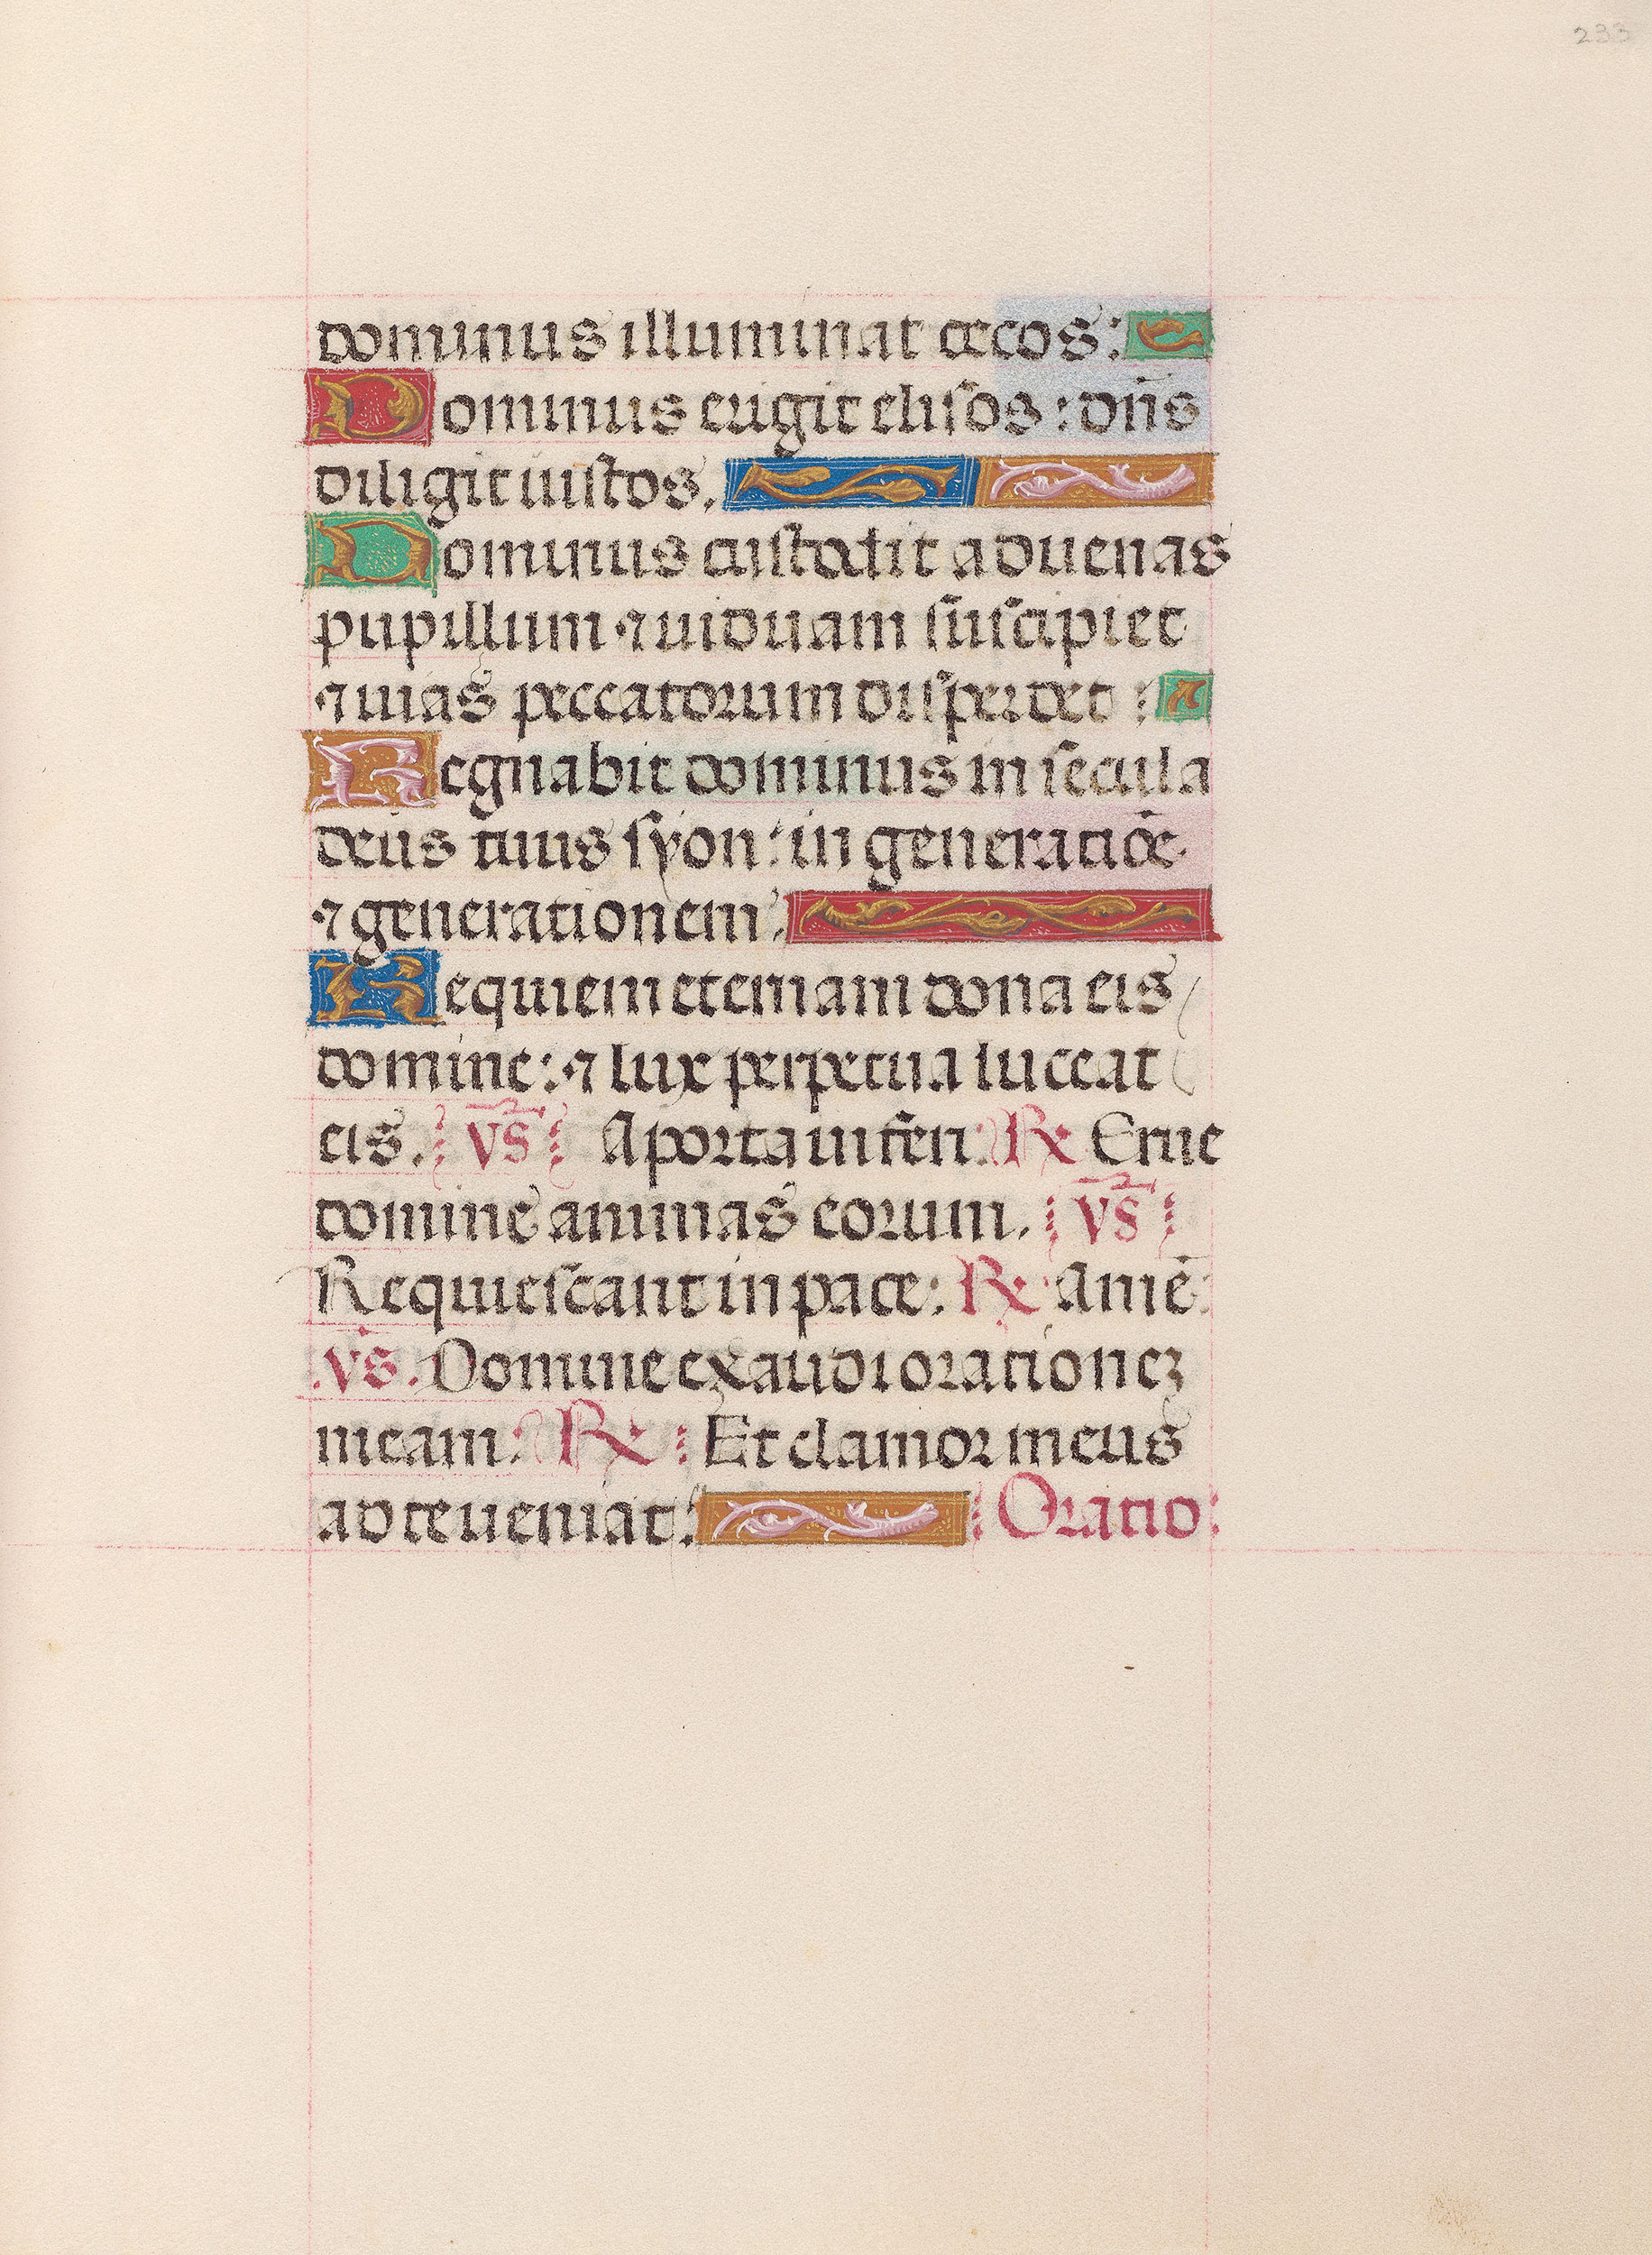 233
dominus illuminat cecos:
Dominus erigit elisos: dn̄s
diligit iustos.
Dominus custodit aduenas
pupillum ⁊ uiduam suscipiet
⁊ uias peccatorum disperdet:
Regnabit dominus in secula
deus tuus syon: in generatiōe
⁊ generationem.
Requiem eternam dona eis
domine: ⁊ lux perpetua luceat
eis. VS A porta inferi. ℟ Erue
domine animas eorum. VS
Requiescant in pace: ℟ Amē.
.VS. Domine exaudi orationeꝫ
meam: ℟: Et clamor meus
ad te ueniat: Oratio: